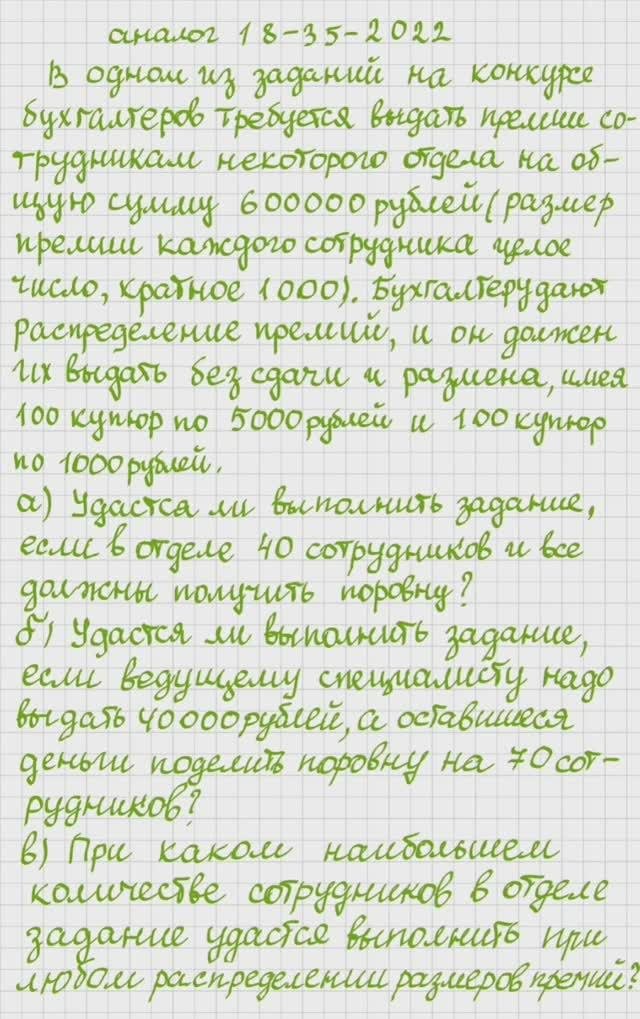 аналог 18-35-2022
В одном из заданий на конкурсе
бухгалтеров требуется выдать премии со-
трудникам некоторого отдела на об-
щую сумму 600000 рублей (размер
премии каждого сотрудника целое
число, кратное 1000). Бухгалтеру дают
распределение премий, и он должен
их выдать без сдачи и размена, имея
100 купюр по 5000 рублей и 100 купюр
по 1000 рублей.
а) Удастся ли выполнить задание,
если в отделе 40 сотрудников и все
должны получить поровну?
б) Удастся ли выполнить задание,
если ведущему специалисту надо
выдать 40000 рублей, а оставшиеся
деньги поделить поровну на 70 сот-
рудников?
в) При каком наибольшем
количестве сотрудников в отделе
задание удастся выполнить при
любом распределении размеров премий?